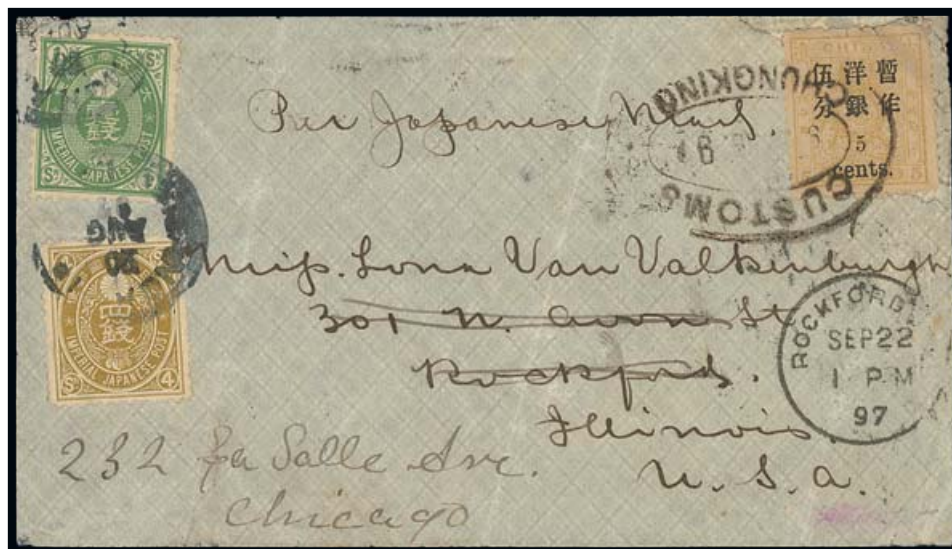 六錢
IMPERIAL JAPANESE POST
四錢
IMPERIAL JAPANESE POST
Sn 4
Per Japanese Mail.
CHUNGKING
CUSTOMS
暫作
洋銀
伍分
5
cents.
AUG
20
Miss. Lona Van Valkenburgh
301 N. Avon St
Rockford.
Illinois.
U. S. a.
ROCKFORD
SEP 22
1 PM
97
232 La Salle Ave.
Chicago